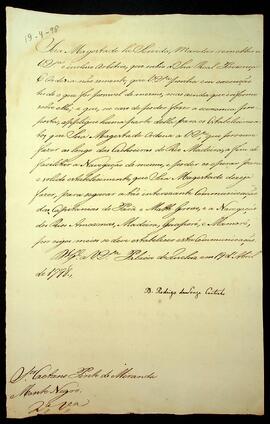 19-4-98
Sua Magestade he Servida Mandar remetter a
V S.ª o incluso Arbitrio, que sobe á Sua Real Presença
E Ordena não somente, que V S.ª ponha em execução
do que for possivel do mesmo, mas ainda que informe
sobre elle, e que, no caso de poder fazer a economia pro-
posta, applique huma parte della, para os Estabelecimen-
tos, que Sua Magestade Ordena a V S.ª que procure
fazer ao longo das Cachoeiras do Rio Madeira, a fim de
facilitar a Navegação do mesmo, e poder-se formar hum
e solido estabelecimento, que Sua Magestade deseja
fazer, para segurar a tão interessante Communicação
das Capitanias do Pará, e Matto Grosso, e a Navegação
dos Rios Amazonas, Madeira, Guaporé, e Mamoré,
por cujo meio se deve estabelecer esta Communicação.
D.s g.e a V S.ª Palacio de Queluz em 19 de Abril
de 1798.
D. Rodrigo de Souza Coutinho
S.r Caetano Pinto de Miranda
Monte Negro.